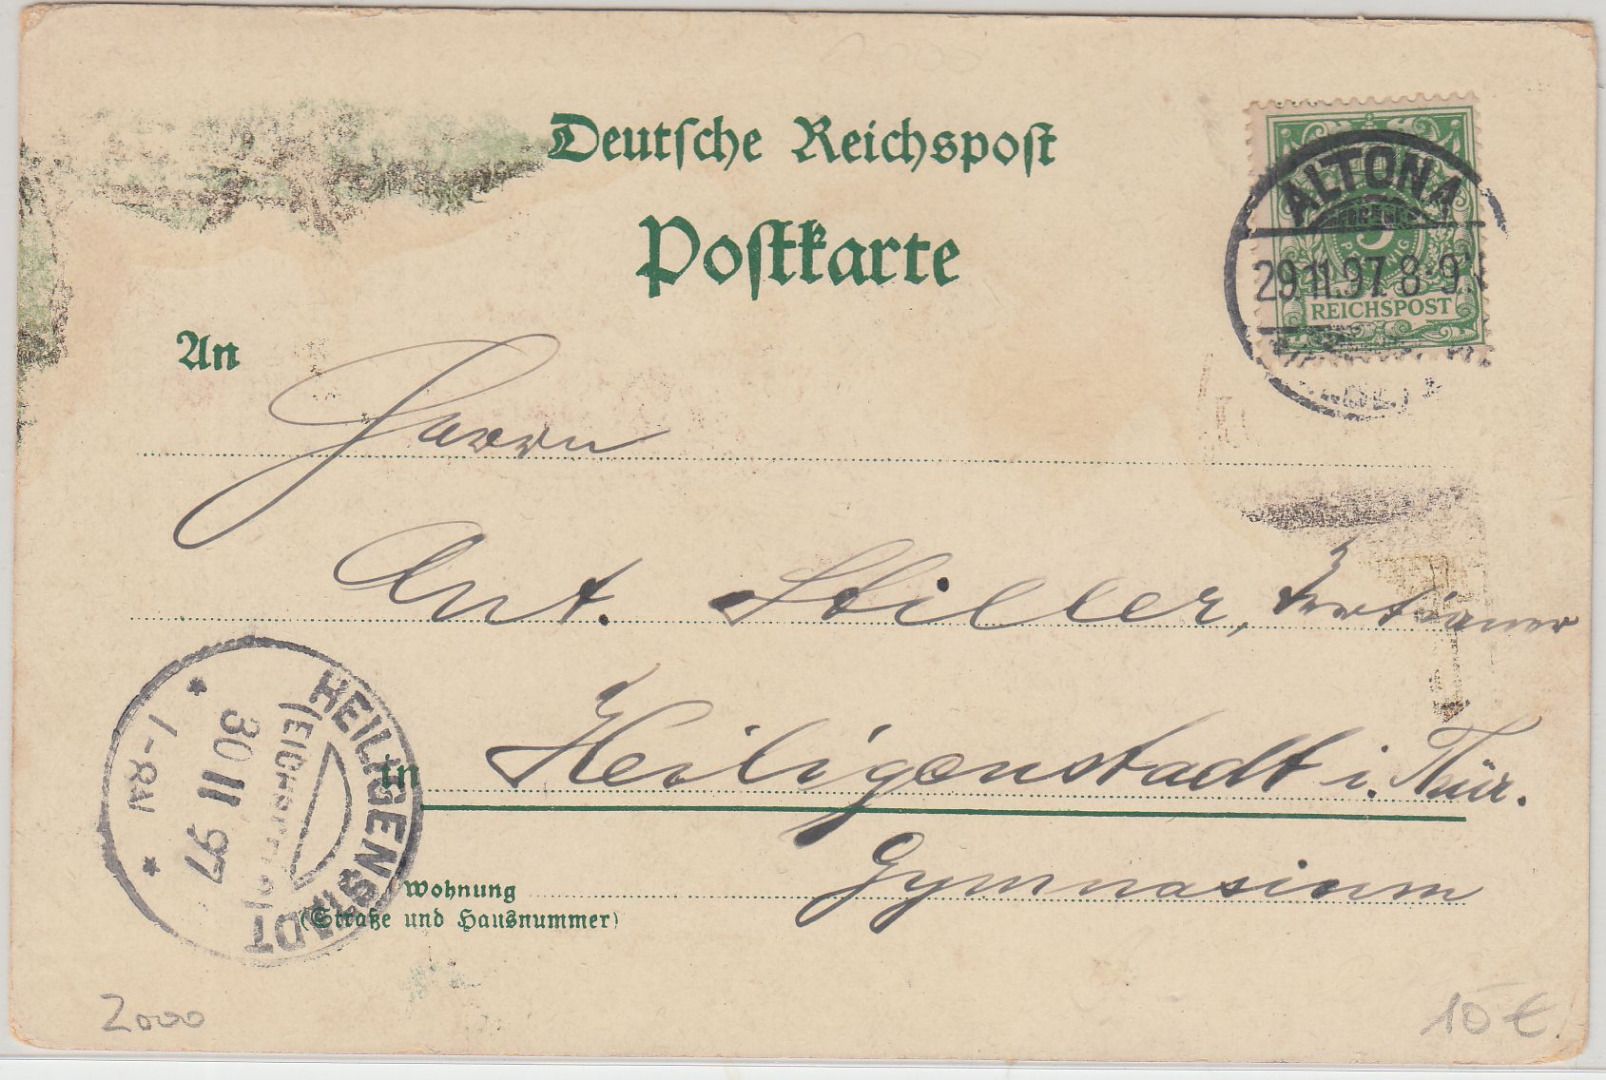 Deutsche Reichspost
Postkarte
ALTONA
5
PFENNIG
29.11.97. 8-9N
REICHSPOST
An
Herrn
Ant. Stiller, Tertianer
in Heiligenstadt i. Thür.
Gymnasium
Wohnung
(Straße und Hausnummer)
HEILIGENSTADT
(EICHSFELD)
30 11 97
7-8V
2000
10 €